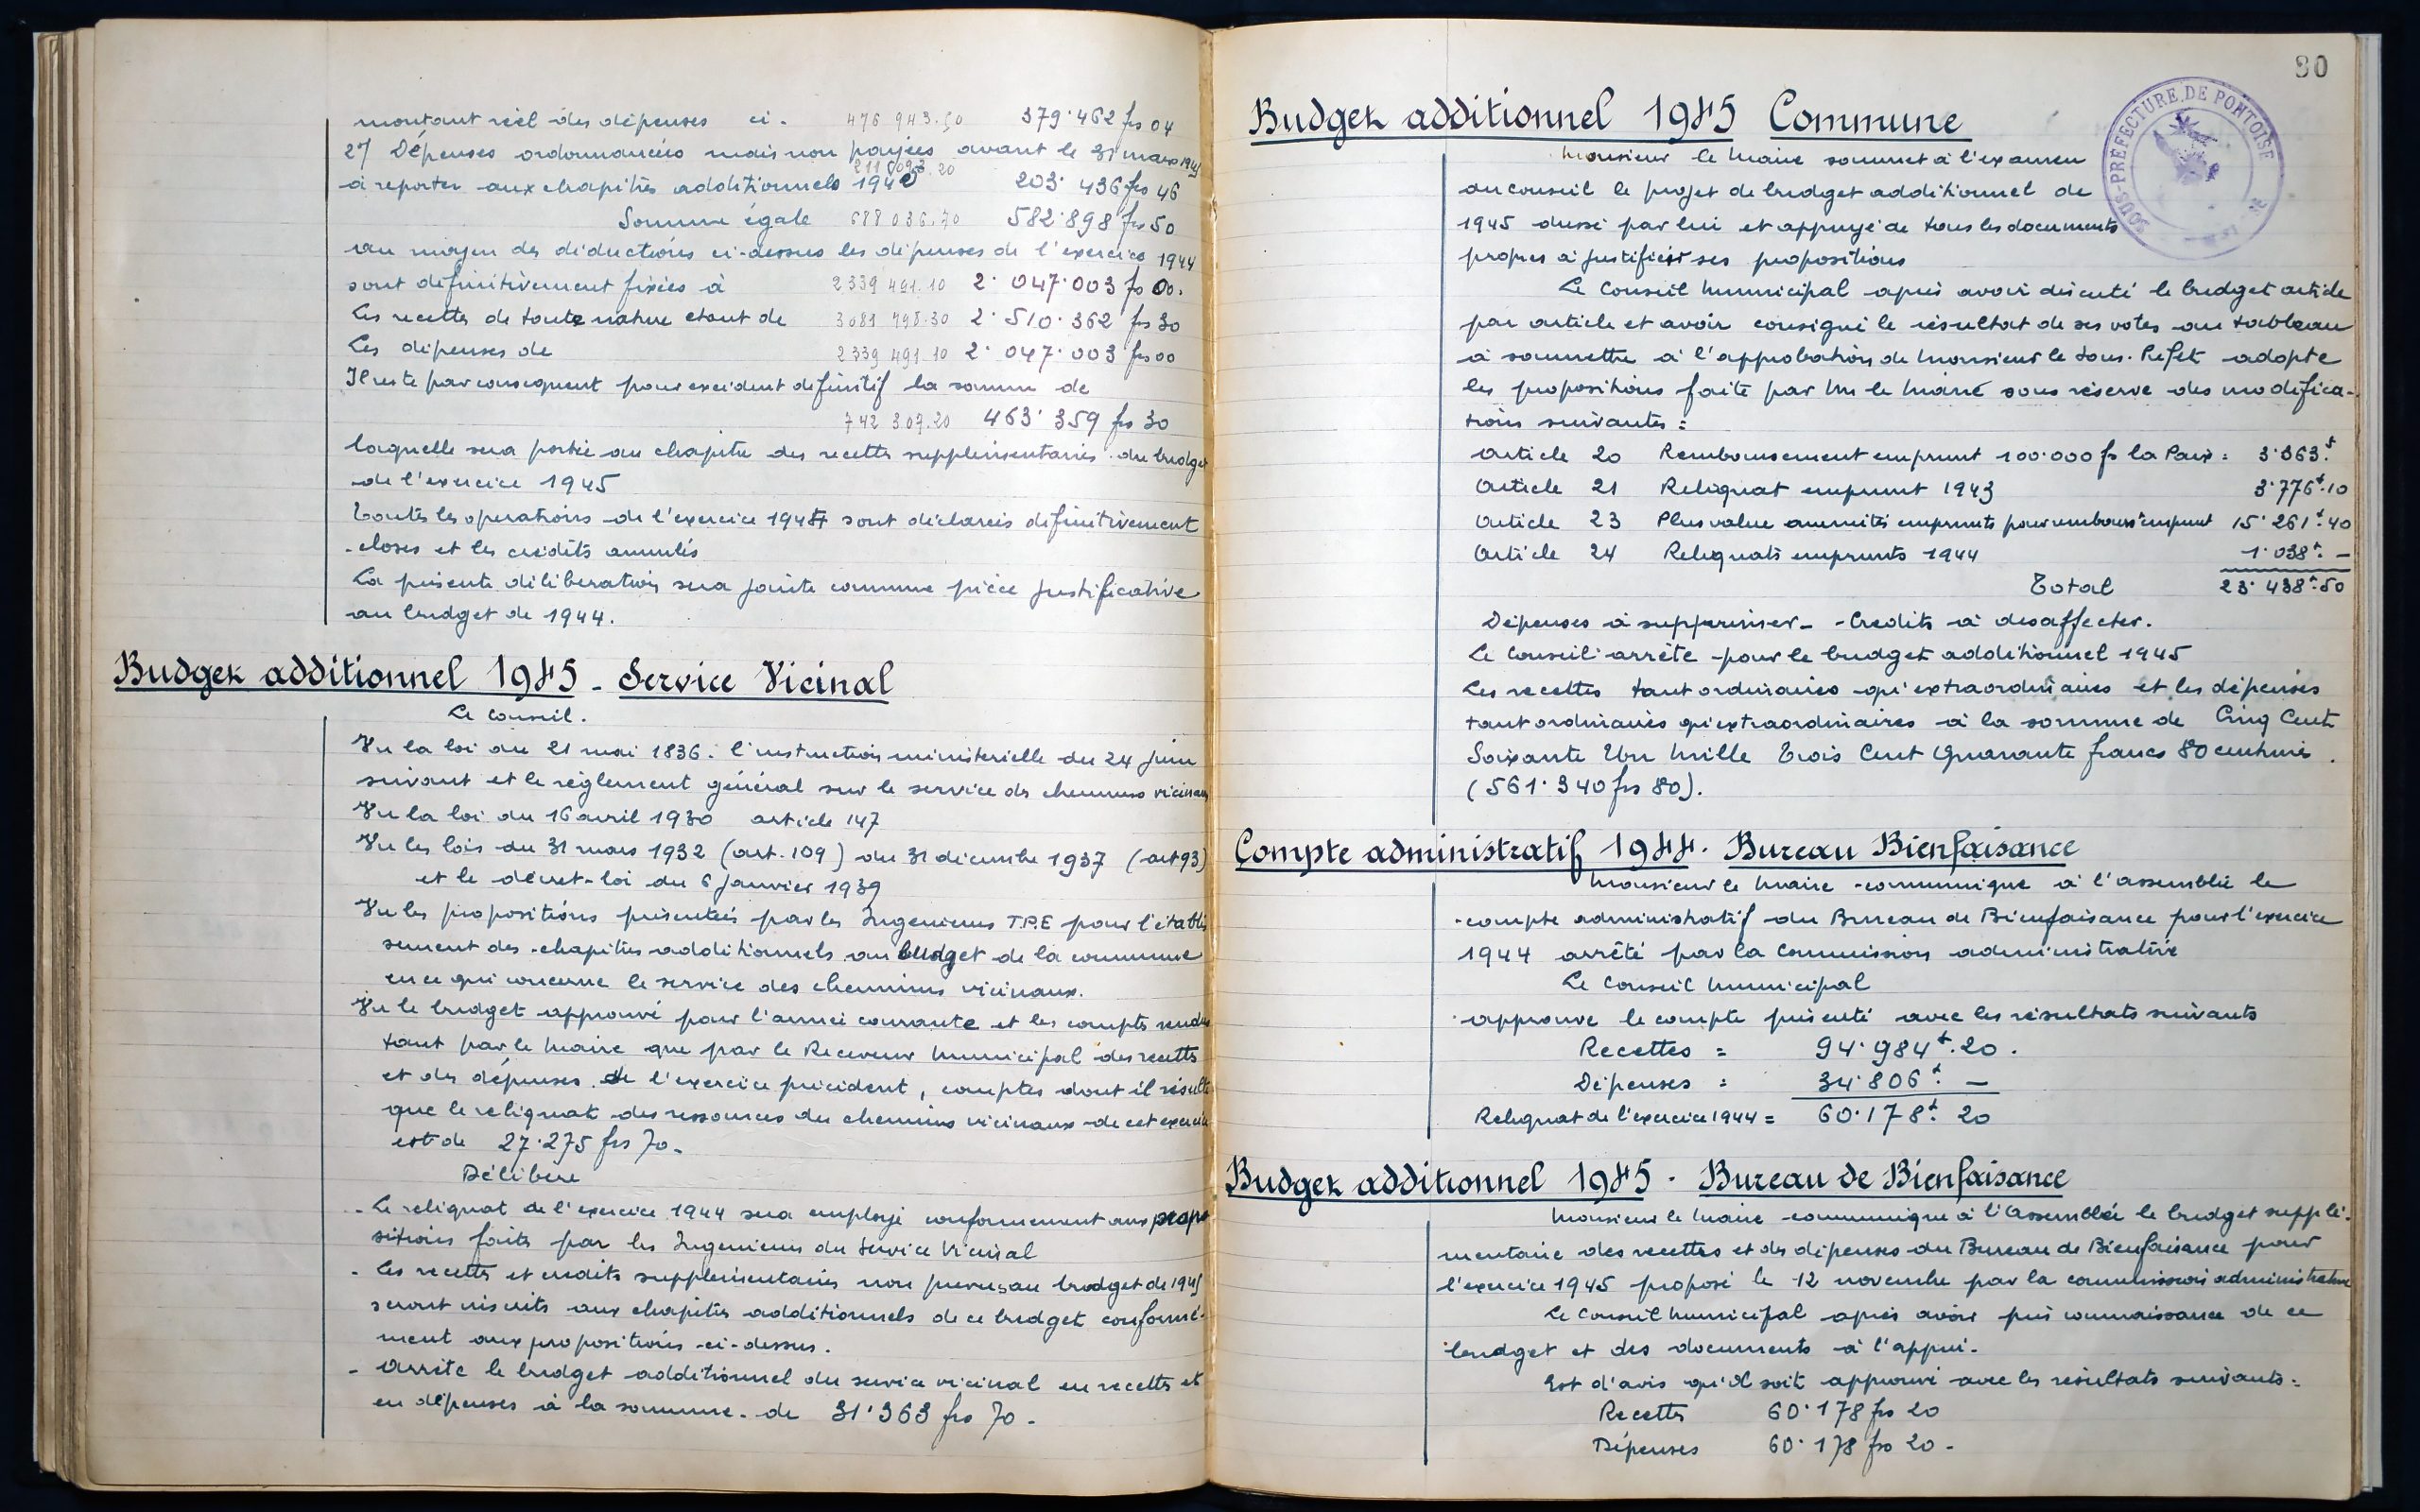 montant réel des dépenses ci. 476 943.50 379.462 frs 04
27 Dépenses ordonnancées mais non payées avant le 31 mars 1945
à reporter aux chapitres additionnels 203.436 frs 46
Somme égale 688 036.70 582.898 frs 50
au moyen des déductions ci-dessus les dépenses de l'exercice 1944
sont définitivement fixées à 2 339 491.10 2.047.003 frs 00.
Les recettes de toute nature étant de 3 081 798.30 2.510.362 frs 30
Les dépenses de 2 339 491.10 2.047.003 frs 00
Il reste par conséquent pour excédent définitif la somme de
742 307.20 463.359 frs 30
laquelle sera portée au chapitre des recettes supplémentaires du budget
de l'exercice 1945
Toutes les opérations de l'exercice 1944 sont déclarées définitivement
closes et les crédits annulés
La présente délibération sera jointe comme pièce justificative
au budget de 1944.
Budget additionnel 1945 - Service Vicinal
Le Conseil.
Vu la loi du 21 mai 1836. l'instruction ministérielle du 24 juin
suivant et le règlement général sur le service des chemins vicinaux
Vu la loi du 16 avril 1930 article 147
Vu les lois du 31 mars 1932 (art. 109) du 31 décembre 1937 (art 93)
et le décret-loi du 6 janvier 1939
Vu les propositions présentées par les Ingenieurs T.P.E pour l'établis
sement des chapitres additionnels au budget de la commune
en ce qui concerne le service des chemins vicinaux.
Vu le budget approuvé pour l'année courante et les comptes rendus
tant par le Maire que par le Receveur Municipal des recettes
et des dépenses de l'exercice précédent, comptes dont il résulte
que le reliquat des ressources des chemins vicinaux de cet exercice
est de 27.275 frs 70.
Délibère
- Le reliquat de l'exercice 1944 sera employé conformement aux propo
sitions faites par les Ingenieurs du Service Vicinal
- Les recettes et crédits supplémentaires non prévus au budget de 1945
seront inscrits aux chapitres additionnels de ce budget conformé-
ment aux propositions ci-dessus.
- Arrête le budget additionnel du service vicinal en recettes et
en dépenses à la somme de 31.363 frs 70.
80
SOUS-PRÉFECTURE DE PONTOISE
Budget additionnel 1945 Commune
Monsieur le Maire soumet à l'examen
du conseil le projet de budget additionnel de
1945 dressé par lui et appuyé de tous les documents
propres à justifier ses propositions
Le Conseil Municipal après avoir discuté le budget article
par article et avoir consigné le résultat de ses votes au tableau
à soumettre à l'approbation de Monsieur le Sous-Préfet adopte
les propositions faite par Mr le Maire sous réserve des modifica-
tions suivantes :
Article 20 Remboursement emprunt 100.000 frs la Paix : 3.363f.
Article 21 Reliquat emprunt 1943 3.776f.10
Article 23 Plus value annuités emprunts pour rembourst emprunt 15.261f.40
Article 24 Reliquats emprunts 1944 1.038f. -
Total 23.438f.50
Dépenses à supprimer - Credits à desaffecter.
Le Conseil arrête pour le budget additionnel 1945
Les recettes tant ordinaires qu'extraordinaires et les dépenses
tant ordinaires qu'extraordinaires à la somme de Cinq Cent
Soixante Un Mille Trois Cent Quarante francs 80 centimes.
(561.340 frs 80).
Compte administratif 1944. Bureau Bienfaisance
Monsieur le Maire communique à l'assemblée le
compte administratif du Bureau de Bienfaisance pour l'exercice
1944 arrêté par la Commission administrative
Le Conseil Municipal
approuve le compte présenté avec les résultats suivants
Recettes = 94.984f.20.
Dépenses : 34.806f. -
Reliquat de l'exercice 1944 = 60.178f. 20
Budget additionnel 1945 - Bureau de Bienfaisance
Monsieur le Maire communique à l'Assemblée le budget supplé-
mentaire des recettes et des dépenses du Bureau de Bienfaisance pour
l'exercice 1945 proposé le 12 novembre par la commission administrative
Le Conseil Municipal après avoir pris connaissance de ce
budget et des documents à l'appui.
Est d'avis qu'il soit approuvé avec les résultats suivants :
Recettes 60.178 frs 20
Dépenses 60.178 frs 20.